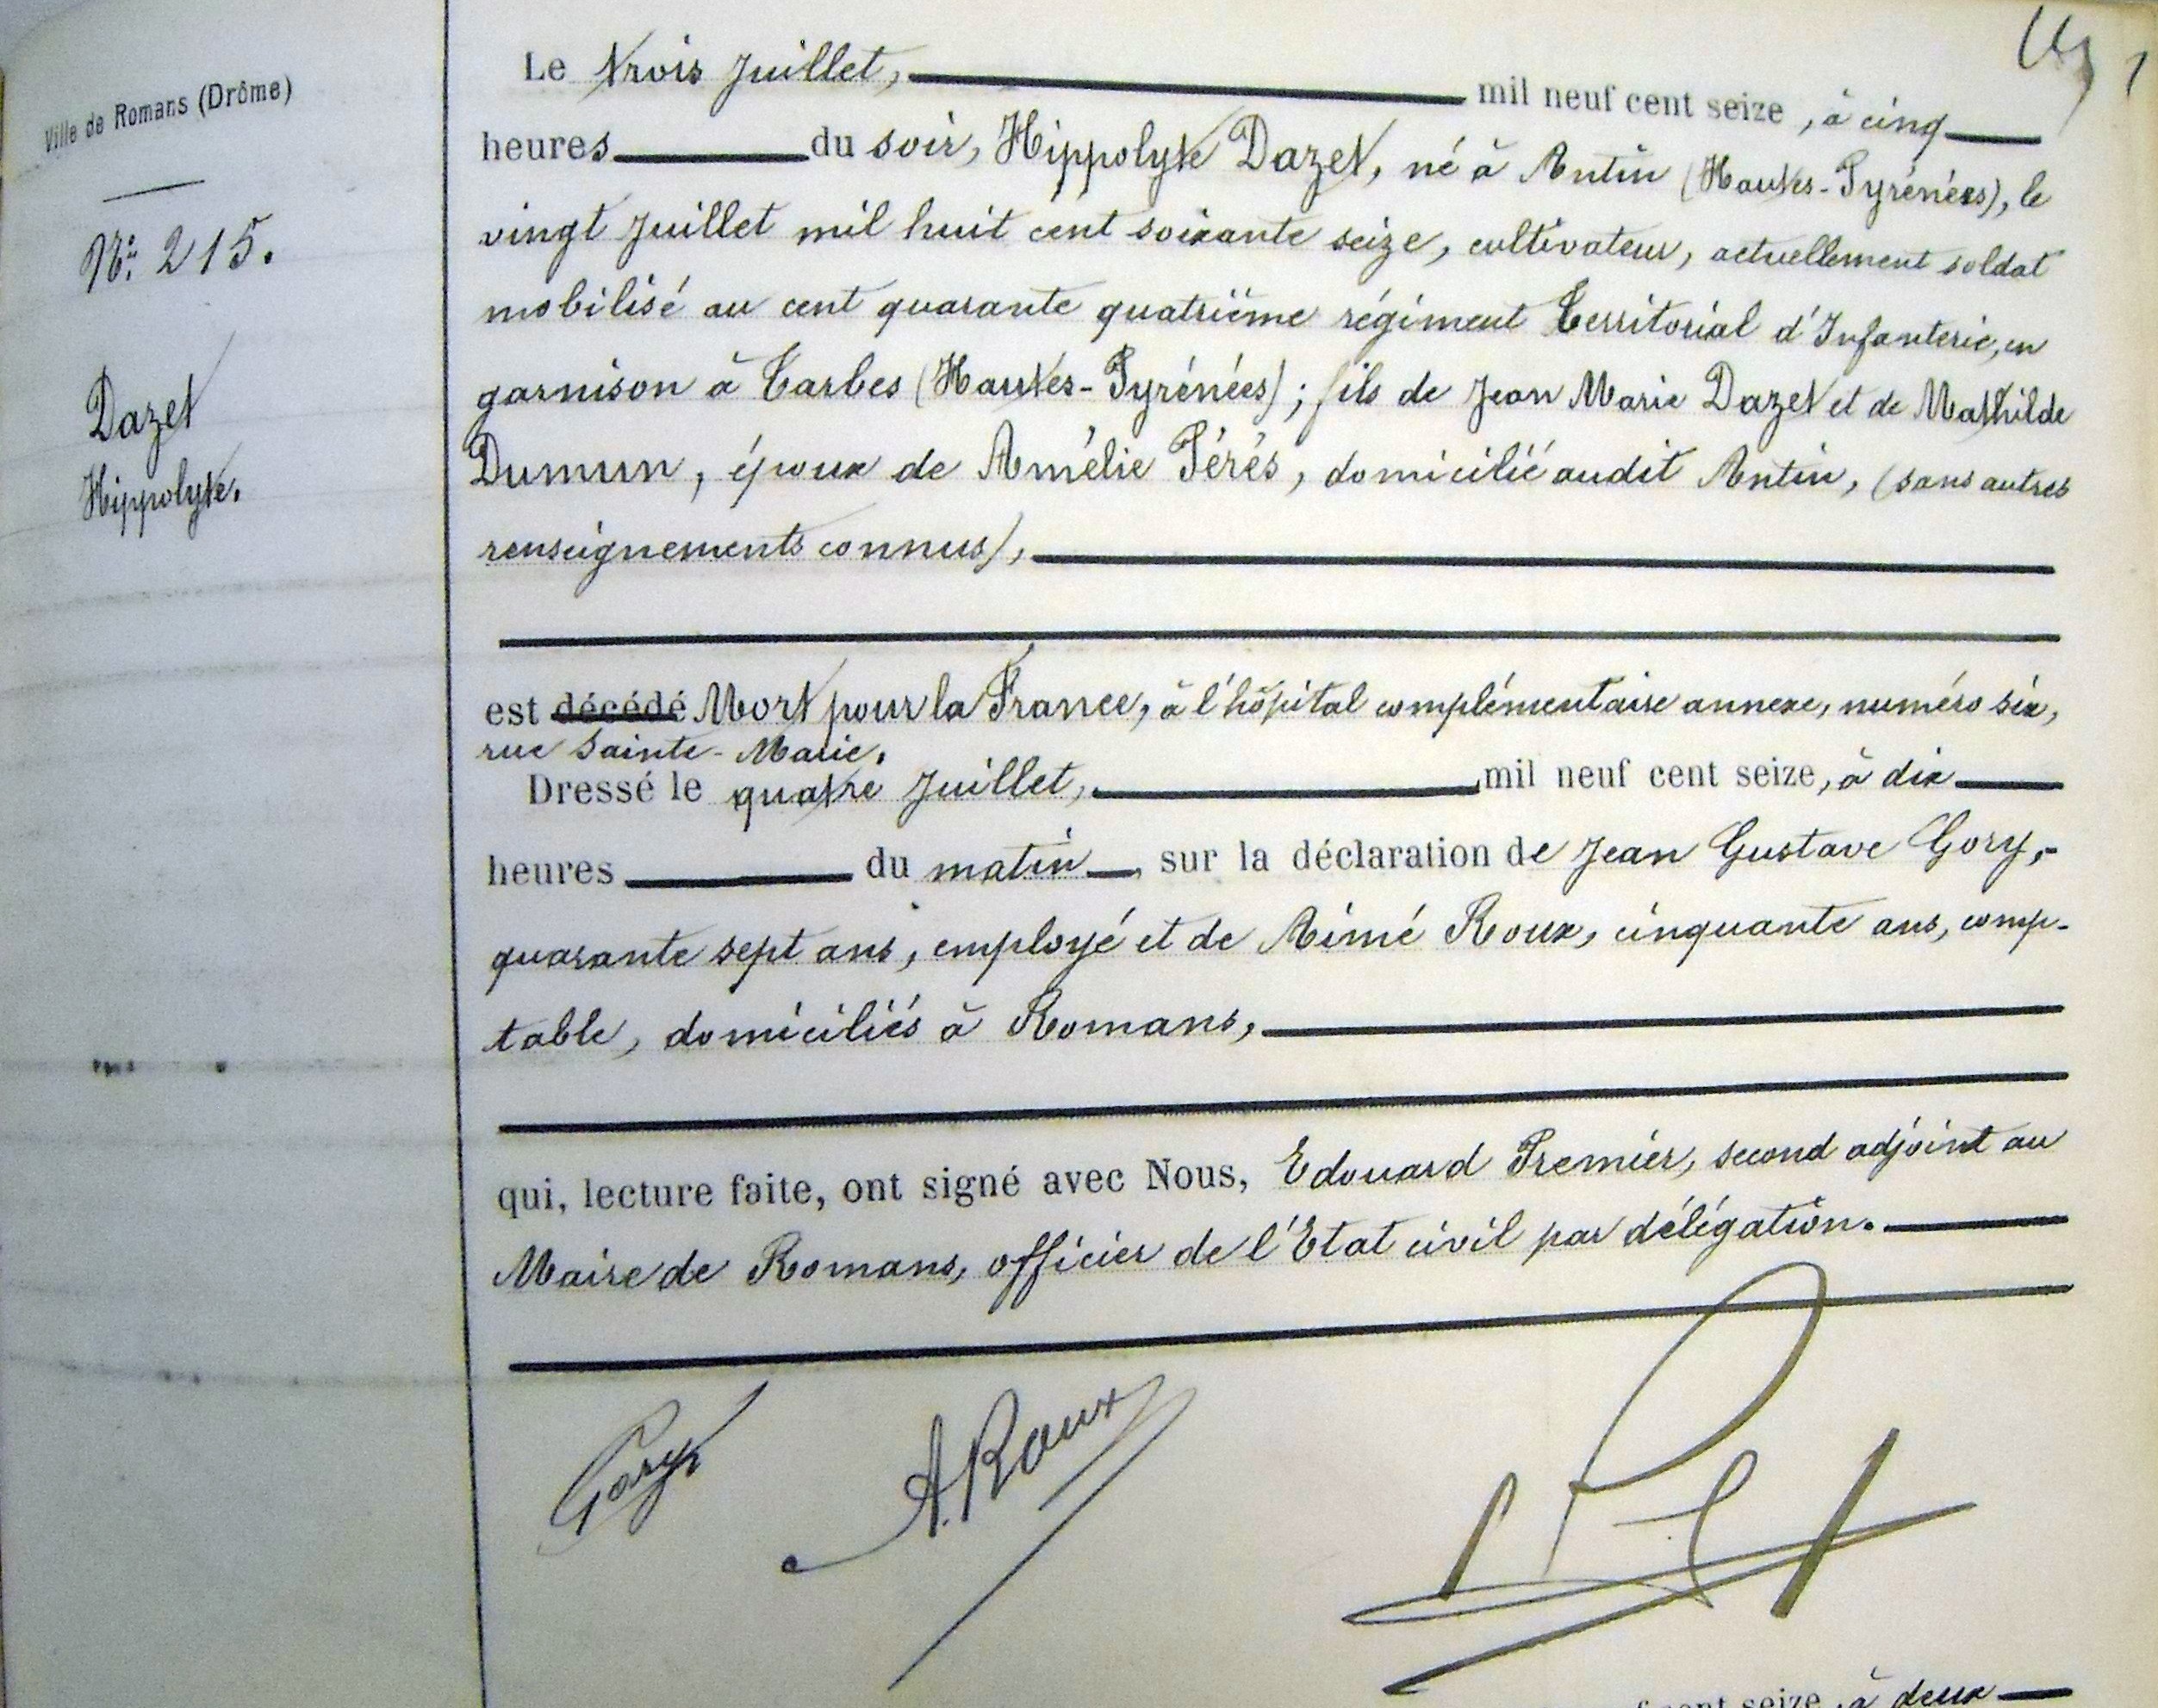 Ville de Romans (Drôme)
N°: 215.
Dazet
Hippolyte.
Le trois Juillet, mil neuf cent seize, à cinq
heures du soir, Hippolyte Dazet, né à Antin (Hautes-Pyrénées), le
vingt Juillet mil huit cent soixante seize, cultivateur, actuellement soldat
mobilisé au cent quarante quatrième régiment Territorial d'Infanterie, en
garnison à Tarbes (Hautes-Pyrénées); fils de Jean Marie Dazet et de Mathilde
Dumun, époux de Amélie Pérés, domicilié audit Antin, (sans autres
renseignements connus),
est décédé Mort pour la France, à l'hôpital complémentaire annexe, numéro six,
rue Sainte-Marie.
Dressé le quatre Juillet, mil neuf cent seize, à dix
heures du matin, sur la déclaration de Jean Gustave Gory,
quarante sept ans, employé et de Aimé Roux, cinquante ans, comp-
table, domiciliés à Romans,
qui, lecture faite, ont signé avec Nous, Edouard Premier, second adjoint au
Maire de Romans, officier de l'Etat civil par délégation.
Gory
A. Roux
cent seize, à deux